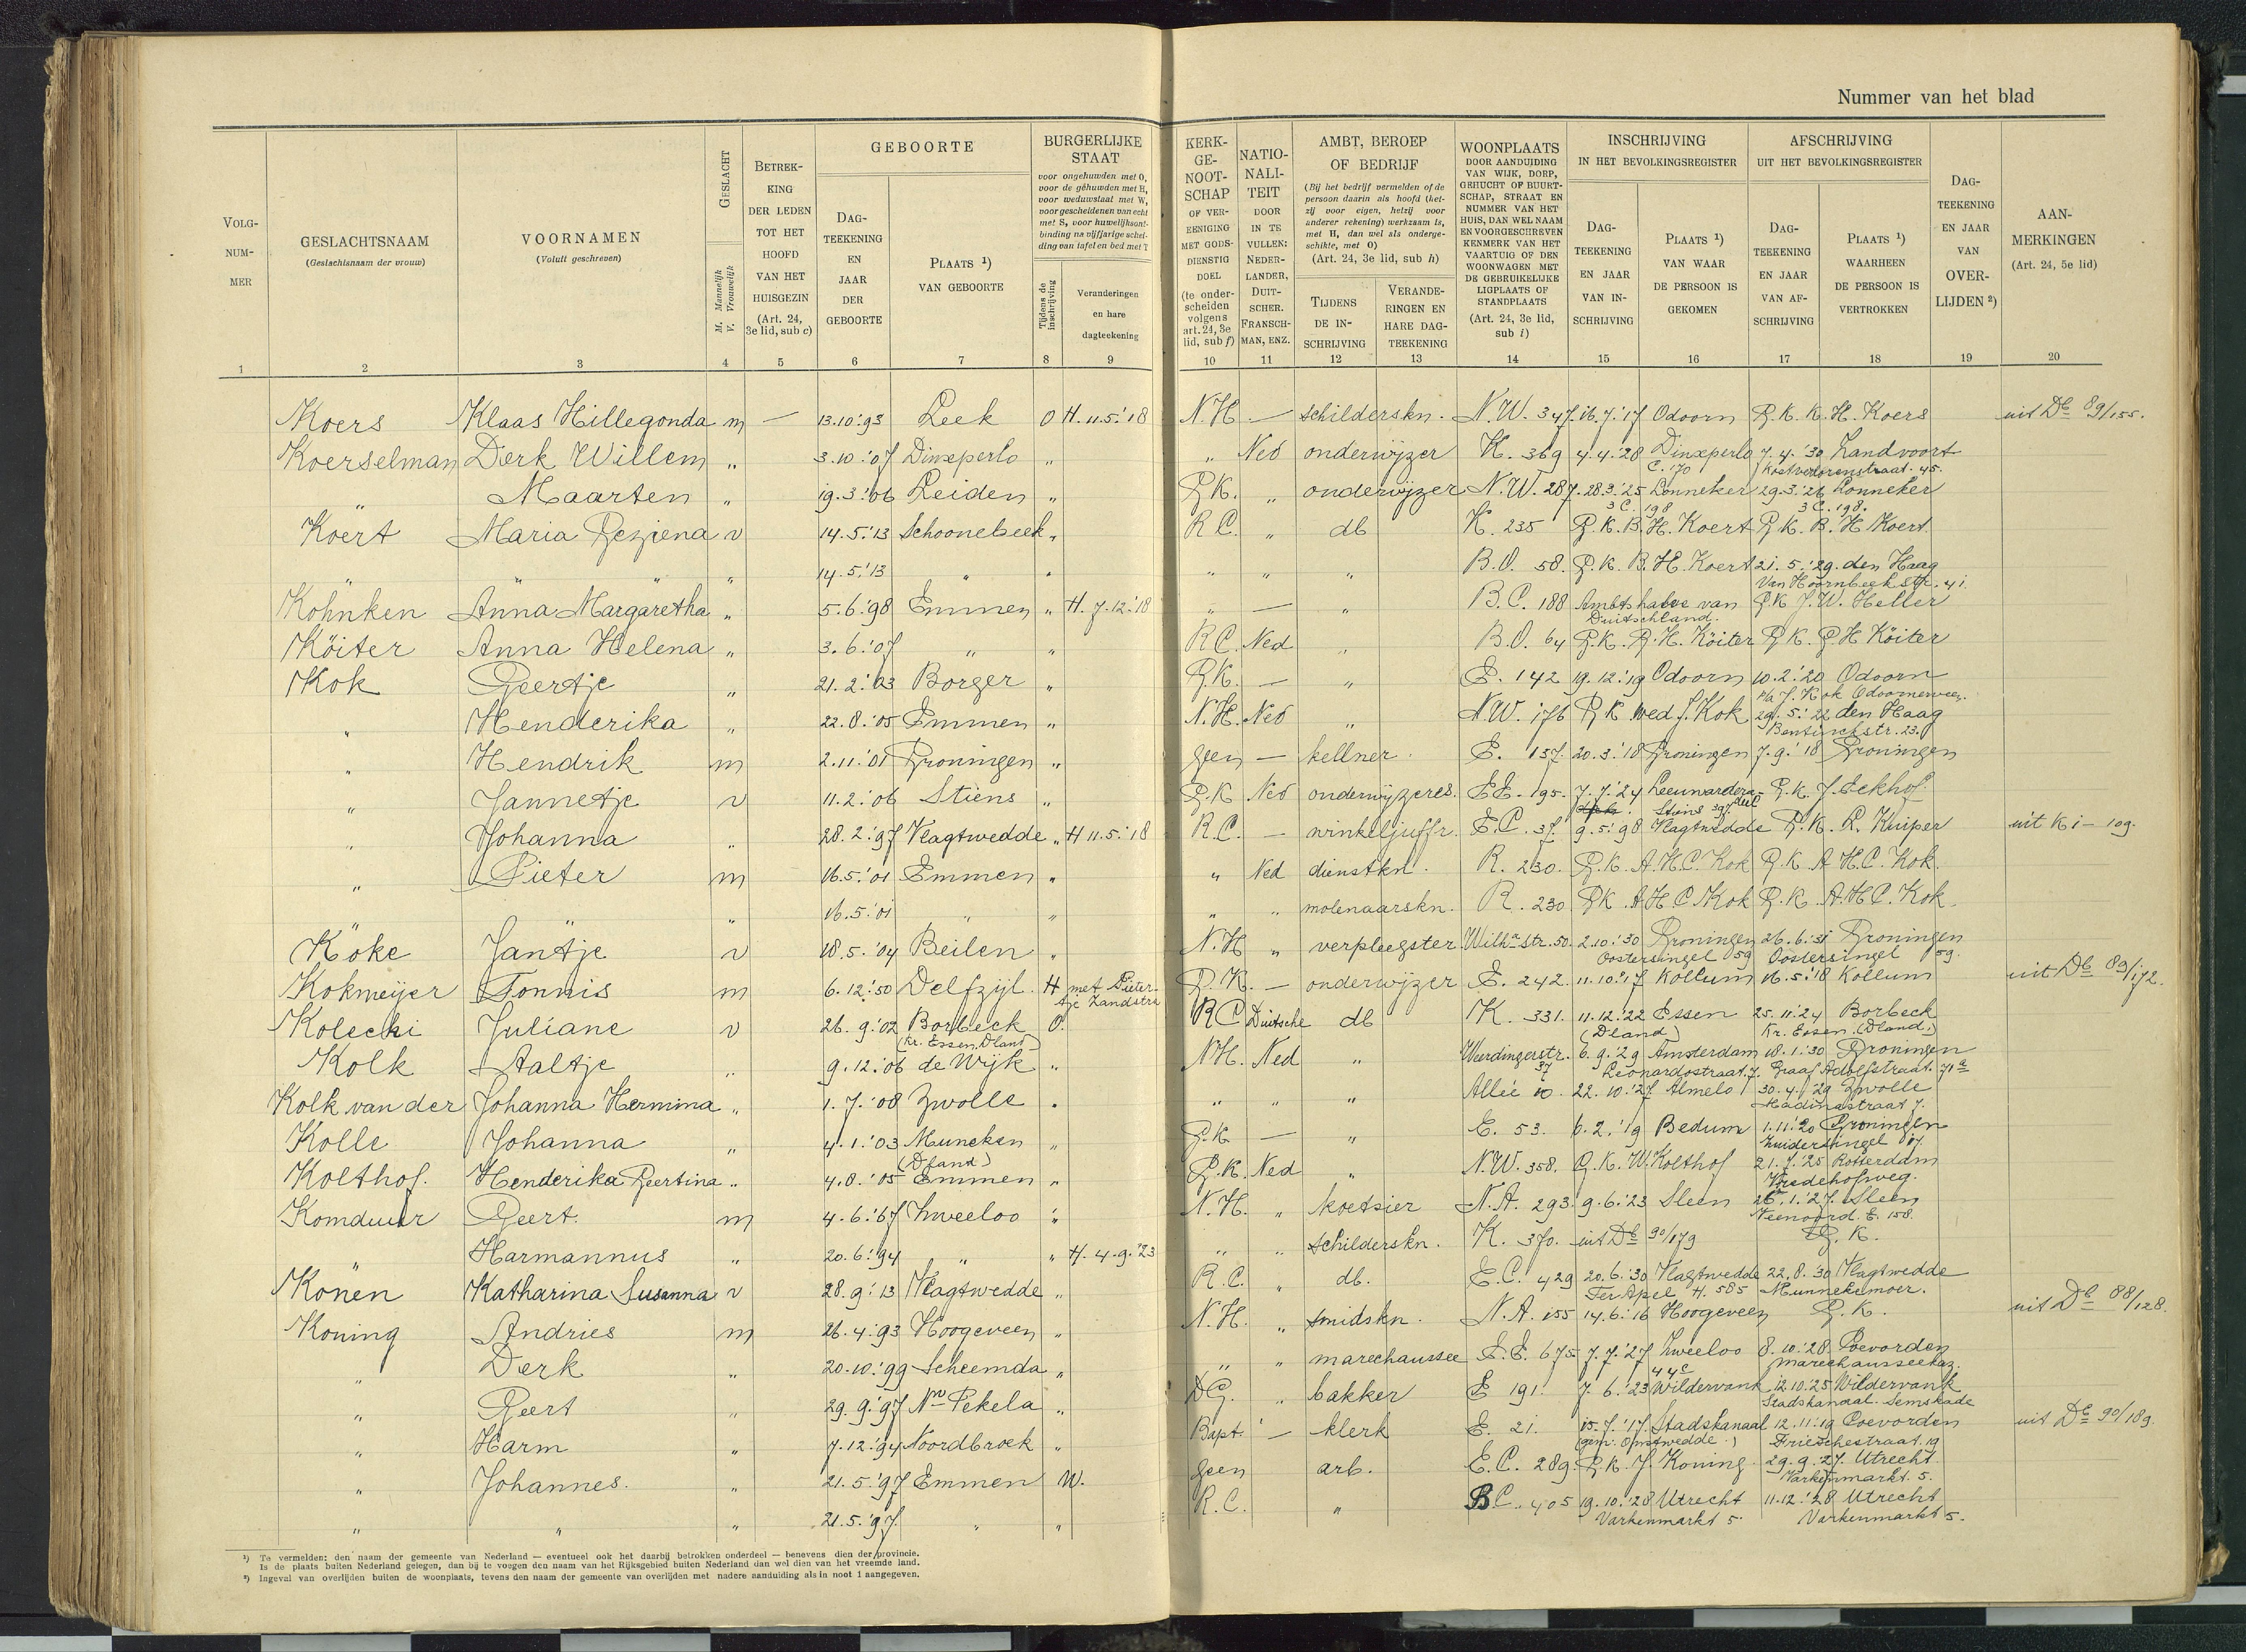 Nummer van het blad
VOLG-NUM-MER
GESLACHTSNAAM
(Geslachtsnaam der vrouw)
VOORNAMEN
(Voluit geschreven)
GESLACHT
M. Mannelijk
V. Vrouwelijk
BETREK-KING DER LEDEN TOT HET HOOFD VAN HET HUISGEZIN (Art. 24, 3e lid, sub c)
GEBOORTE
DAG-TEEKENING EN JAAR DER GEBOORTE
PLAATS ¹) VAN GEBOORTE
BURGERLIJKE STAAT
voor ongehuwden met O, voor de gehuwden met H, voor weduwstaat met W, voor gescheidenen van echt met S, voor huwelijksont-binding na vijfjarige schei-ding van tafel en bed met T
Tijdens de inschrijving
Veranderingen en hare dagteekening
KERK-GE-NOOT-SCHAP OF VER-EENIGING MET GODS-DIENSTIG DOEL (te onder-scheiden volgens art. 24, 3e lid, sub f)
NATIO-NALI-TEIT DOOR IN TE VULLEN: NEDER-LANDER, DUIT-SCHER. FRANSCH-MAN, ENZ.
AMBT, BEROEP OF BEDRIJF
(Bij het bedrijf vermelden of de persoon daarin als hoofd (het-zij voor eigen, hetzij voor anderer rekening) werkzaam is, met H, dan wel als onderge-schikte, met O)
(Art. 24, 3e lid, sub h)
TIJDENS DE IN-SCHRIJVING
VERANDE-RINGEN EN HARE DAG-TEEKENING
WOONPLAATS DOOR AANDUIDING VAN WIJK, DORP, GEHUCHT OF BUURT-SCHAP, STRAAT EN NUMMER VAN HET HUIS, DAN WEL NAAM EN VOORGESCHREVEN KENMERK VAN HET VAARTUIG OF DEN WOONWAGEN MET DE GEBRUIKELIJKE LIGPLAATS OF STANDPLAATS (Art. 24, 3e lid, sub i)
INSCHRIJVING IN HET BEVOLKINGSREGISTER
DAG-TEEKENING EN JAAR VAN IN-SCHRIJVING
PLAATS ¹) VAN WAAR DE PERSOON IS GEKOMEN
AFSCHRIJVING UIT HET BEVOLKINGSREGISTER
DAG-TEEKENING EN JAAR VAN AF-SCHRIJVING
PLAATS ¹) WAARHEEN DE PERSOON IS VERTROKKEN
DAG-TEEKENING EN JAAR VAN OVER-LIJDEN ²)
AAN-MERKINGEN (Art. 24, 5e lid)
1 2 3 4 5 6 7 8 9 10 11 12 13 14 15 16 17 18 19 20
Koers Klaas Hillegonda m — 13.10.'93 Leek O H. 11.5.'18 N.H — schilderskn. N.W. 347. 16.7.'17 Odoorn G.K. K.H. Koers uit Db 89/155.
Koerselman Derk Willem " 3.10.'07 Dinxperlo " " Ned onderwijzer K. 369 4.4.'28 Dinxperlo 7.4.'30 Zandvoort
C. 170 Kostverlorenstraat. 45.
" Maarten " 19.3.'06 Leiden " G.K. " onderwijzer N.W. 287. 28.3.'25 Lonneker 29.3.'26 Lonneker
3 C. 198 3 C. 198.
Koert Maria Geziena v 14.5.'13 Schoonebeek " R.C. " db K. 235 G.K. B.H. Koert G.K. B.H Koert
" " " 14.5.'13 " " " " " B.O. 58. G.K. B.H. Koert 21.5.'29. den Haag
Van Hoornbeekstr. 41
Köhnken Anna Margaretha " 5.6.'98 Emmen " H. 7.12.'18 " — " B.C. 188 Ambtshalve van G.K J.W. Heller
Duitschland.
Köiter Anna Helena " 3.6.'07 " " R.C. Ned " B.O. 64 G.K. G.H. Köiter G.K. G H Köiter
Kok Geertje " 21.2.'03 Borger " G.K. — " E. 142 19.12.'19 Odoorn 10.2.'20 Odoorn
p/a J. Kok Odoornerveen
" Henderika " 22.8.'05 Emmen " N.H. Ned " N.W. 176 G K wed J. Kok 29.5.'22 den Haag
Bentinckstr. 23.
" Hendrik m 2.11.'01 Groningen " geen — kellner. E. 137. 20.3.'18 Groningen 7.9.'18 Groningen
" Jannetje v 11.2.'06 Stiens " G.K Ned onderwijzeres. E.E. 195. 7.7.'24 Leeuwardera- G.K. J. Eekhof
deel Stiens 397.
" Johanna " 28.2.'97 Vlagtwedde " H 11.5.'18 R.C. — winkeljuffr. E.C. 37. 9.5.'98 Vlagtwedde G.K. R. Kuiper uit K i – 109.
" Pieter m 16.5.'01 Emmen " " Ned dienstkn. R. 230. G.K. A.H.C. Kok G.K A H.C. Kok
" 16.5.'01 " " " " molenaarskn. R. 230 G K. A H C. Kok G.K. A.H.C. Kok
Köke Jantje v 18.5.'04 Beilen " N.H " verpleegster Wilha str. 50. 2.10.'30 Groningen 26.6.'31 Groningen
Oostersingel 59 Oostersingel 59.
Kokmeijer Tonnis m 6.12.'50 Delfzijl. H met Pieter-tje Zandstra G.K. — onderwijzer E. 242. 11.10.'17 Kollum 16.5.'18 Kollum uit Db 89/172.
Kolecki Juliane v 26.9.'02 Borbeck O. R C Duitsche db K. 331. 11.12.'22 Essen 25.11.'24 Borbeck
(Kr. Essen. Dland) (Dland) Kr. Essen. (Dland.)
Kolk Aaltje " 9.12.'06 de Wijk " N.H. Ned " Weerdingerstr. 37 6.9.'29 Amsterdam 18.1.'30 Groningen
Leonardostraat. 7. Graaf Adolfstraat. 71a
Kolk van der Johanna Hermina " 1.7.'08 Zwolle " " " " Alleé 10. 22.10.'27. Almelo 30.4.'29 Zwolle
Madinastraat 7.
Kolle Johanna " 4.1.'03 Muncken " G.K — " E. 53. 6.2.'19 Bedum 1.11.'20 Groningen
(Dland) Zuidersingel 17.
Kolthof. Henderika Geertina " 4.8.'05 Emmen " G.K. Ned " N.W. 358. G.K. W. Kolthof 21.7.'25 Rotterdam
Vredehofweg.
Komduur Geert. m 4.6.'67 Zweeloo " N.H. " koetsier N.A. 293. 9.6.'23 Sleen 26.1.'27. Sleen
Veenoord. E. 158.
" Harmannus " 20.6.'94 " " H. 4.9.'23 " " schilderskn. K. 370. uit Db 90/179 G.K.
Könen Katharina Susanna v 28.9.'13 Vlagtwedde " R.C. " db. E.C. 429 20.6.'30 Vlagtwedde 22.8.'30 Vlagtwedde
Ter Apel H. 585 Munnekemoer.
Koning Andries m 26.4.'93 Hoogeveen " N.H. " smidskn. N.A. 155 14.6.'16 Hoogeveen G.K. uit Db 88/128.
" Derk " 20.10.'99 Scheemda " " " marechaussee E.E. 675 7.7.'27 Zweeloo 8.10.'28. Coevorden
44c Marechausseekaz.
" Geert " 29.9.'97 Nw Pekela " D.G. " bakker E 191. 7.6.'23 Wildervank 12.10.'25 Wildervank
Stadskanaal. Semskade
" Harm " 7.12.'94 Noordbroek " Bapt. — klerk E. 21. 15.7.'17. Stadskanaal 12.11.'19 Coevorden uit Db 90/189.
(gem. Onstwedde.) Frieschestraat. 19
" Johannes. " 21.5.'97 Emmen W. geen arb. E.C. 289. G.K. J. Koning 29.9.'27. Utrecht.
Varkenmarkt. 5.
" " " 21.5.'97. " " R.C. " B C. 405 19.10.'28 Utrecht 11.12.'28 Utrecht
Varkenmarkt 5. Varkenmarkt 5.
¹) Te vermelden: den naam der gemeente van Nederland — eventueel ook het daarbij betrokken onderdeel — benevens dien der provincie.
Is de plaats buiten Nederland gelegen, dan bij te voegen den naam van het Rijksgebied buiten Nederland dan wel dien van het vreemde land.
²) Ingeval van overlijden buiten de woonplaats, tevens den naam der gemeente van overlijden met nadere aanduiding als in noot 1 aangegeven.